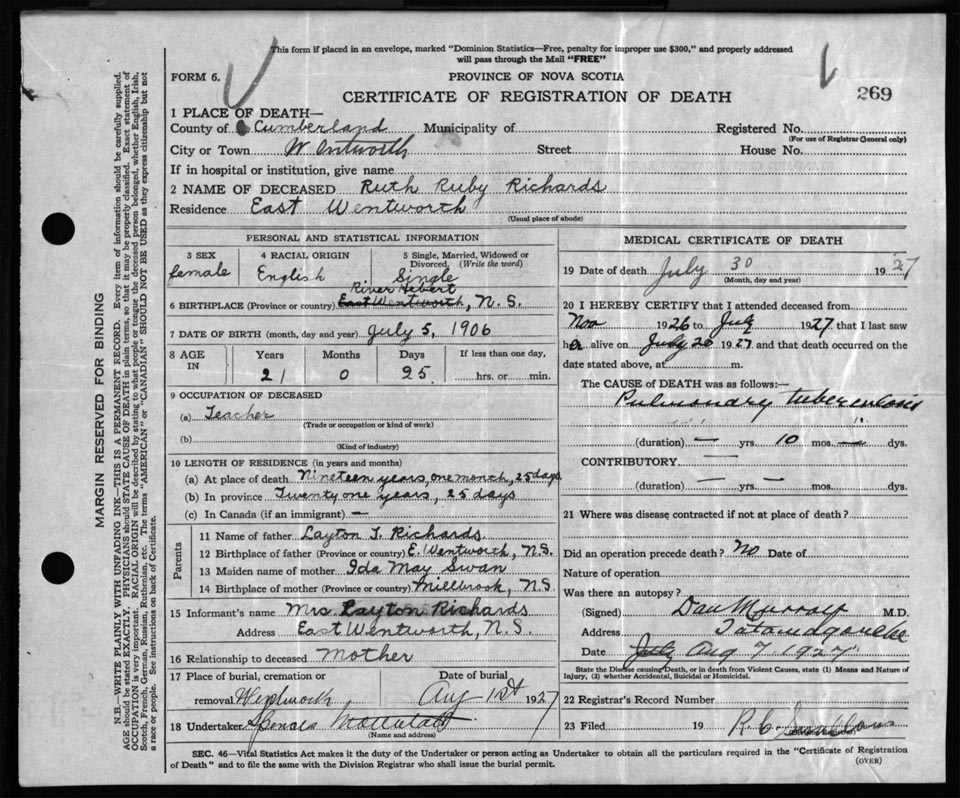 This form if placed in an envelope, marked "Dominion Statistics—Free, penalty for improper use $300," and properly addressed
will pass through the Mail "FREE"
FORM 6.
PROVINCE OF NOVA SCOTIA
CERTIFICATE OF REGISTRATION OF DEATH
269
1 PLACE OF DEATH—
County of Cumberland Municipality of Registered No.
(For use of Registrar General only)
City or Town Wentworth Street House No.
If in hospital or institution, give name
2 NAME OF DECEASED Ruth Ruby Richards
Residence East Wentworth
(Usual place of abode)
PERSONAL AND STATISTICAL INFORMATION
3 SEX female
4 RACIAL ORIGIN English
5 Single, Married, Widowed or Divorced. (Write the word) Single
River Hebert
6 BIRTHPLACE (Province or country) East Wentworth, N.S.
7 DATE OF BIRTH (month, day and year) July 5, 1906
8 AGE IN Years Months Days If less than one day,
21 0 25 hrs. or min.
9 OCCUPATION OF DECEASED
(a) Teacher
(Trade or occupation or kind of work)
(b)
(Kind of industry)
10 LENGTH OF RESIDENCE (in years and months)
(a) At place of death Nineteen years, one month, 25 days
(b) In province Twenty one years, 25 days
(c) In Canada (if an immigrant) —
Parents
11 Name of father Layton T. Richards
12 Birthplace of father (Province or country) E. Wentworth, N.S.
13 Maiden name of mother Ida May Swan
14 Birthplace of mother (Province or country) Millbrook, N.S.
15 Informant's name Mrs Layton Richards
Address East Wentworth, N.S.
16 Relationship to deceased Mother
17 Place of burial, cremation or removal Date of burial
Wentworth Aug 1st 1927
18 Undertaker
(Name and address)
MEDICAL CERTIFICATE OF DEATH
19 Date of death July 30 1927
(Month, day and year)
20 I HEREBY CERTIFY that I attended deceased from
Nov 1926 to July 1927 that I last saw
her alive on July 26 1927 and that death occurred on the
date stated above, at m.
The CAUSE OF DEATH was as follows:—
Pulmonary tuberculosis
(duration) — yrs. 10 mos. — dys.
CONTRIBUTORY —
(duration) — yrs. — mos. dys.
21 Where was disease contracted if not at place of death?
Did an operation precede death? No Date of
Nature of operation
Was there an autopsy?
(Signed) Dan Murray M.D.
Address Tatamagouche
Date July Aug 7 1927
State the Disease causing Death, or in death from Violent Causes, state (1) Means and Nature of
Injury, (2) whether Accidental, Suicidal or Homicidal.
22 Registrar's Record Number
23 Filed 19 R. C.
SEC. 46—Vital Statistics Act makes it the duty of the Undertaker or person acting as Undertaker to obtain all the particulars required in the "Certificate of Registration
of Death" and to file the same with the Division Registrar who shall issue the burial permit.
(OVER)
MARGIN RESERVED FOR BINDING
N.B.—WRITE PLAINLY WITH UNFADING INK—THIS IS A PERMANENT RECORD. Every item of information should be carefully supplied.
AGE should be stated EXACTLY. PHYSICIANS should STATE CAUSE OF DEATH in plain terms, so that it may be properly classified. Exact statement of
OCCUPATION is very important. RACIAL ORIGIN will be described by stating to what people or tongue the deceased person belonged, whether English, Irish,
Scotch, French, German, Russian, Ruthenian, etc. The terms "AMERICAN" or "CANADIAN" SHOULD NOT BE USED as they express citizenship but not
a race or people. See instructions on back of Certificate.